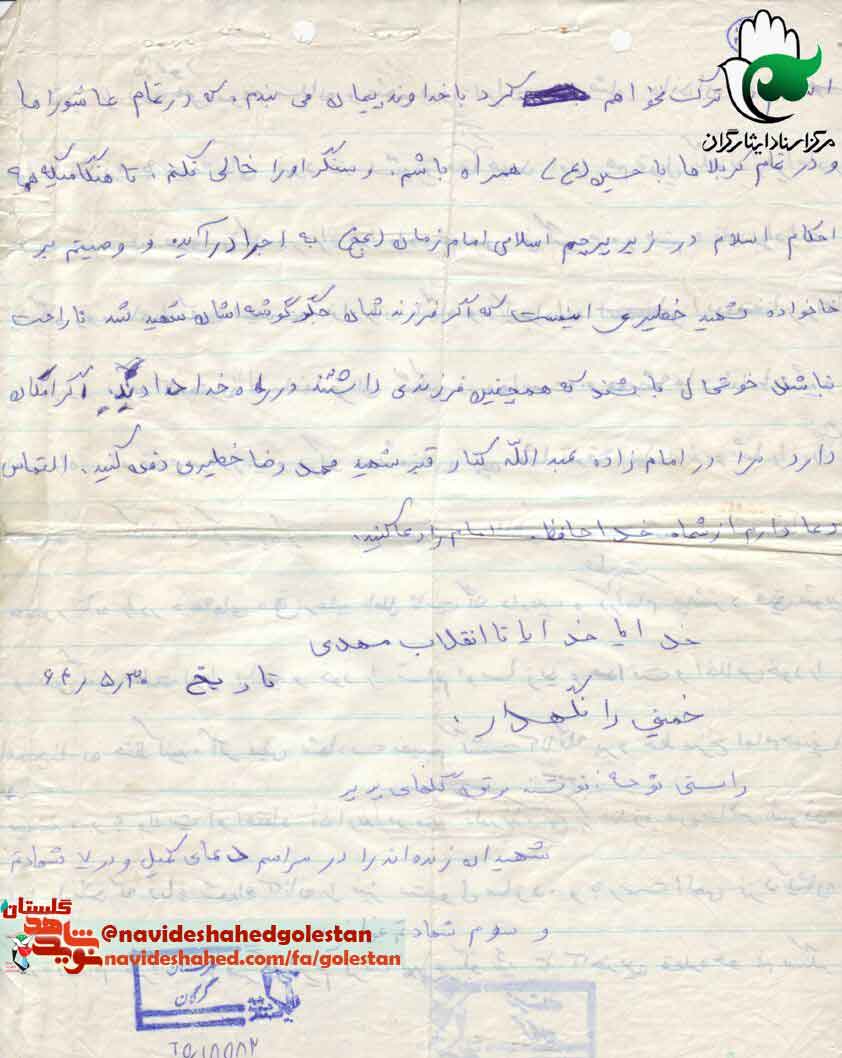 مرکز اسناد ایثارگران
ترک نخواهم کرد با خداوند پیمان می بندم، که در تمام عاشورا ها
و در تمام کربلا ها با حسین (ع) همراه باشم. و سنگر او را خالی نکنم، تا هنگامیکه همه
احکام اسلام در زیر پرچم اسلامی امام زمان (عج) به اجرا درآید و وصیتم بر
خانواده شهید خطیری اینست که اگر فرزندشان جگر گوشه اشان شهید شد ناراحت
نباشند خوشحال باشند که همچنین فرزندی داشتند در راه خدا دادند. اگر امکان
دارد مرا در امام زاده عبدالله کنار قبر شهید محمد رضا خطیری دفن کنید. التماس
دعا دارم از شما. خداحافظ. امام را دعا کنید.
خدایا خدایا تا انقلاب مهدی
تاریخ ۶۴٫۵٫۳۰
خمینی را نگهدار.
راستی توجه: گلهای پرپر
شهیدان زنده اند را در مراسم دعای کمیل و در شهادتم
و سوم شهادتم
گلستان
نوید شاهد
@navideshahedgolestan
navideshahed.com/fa/golestan
گرگان